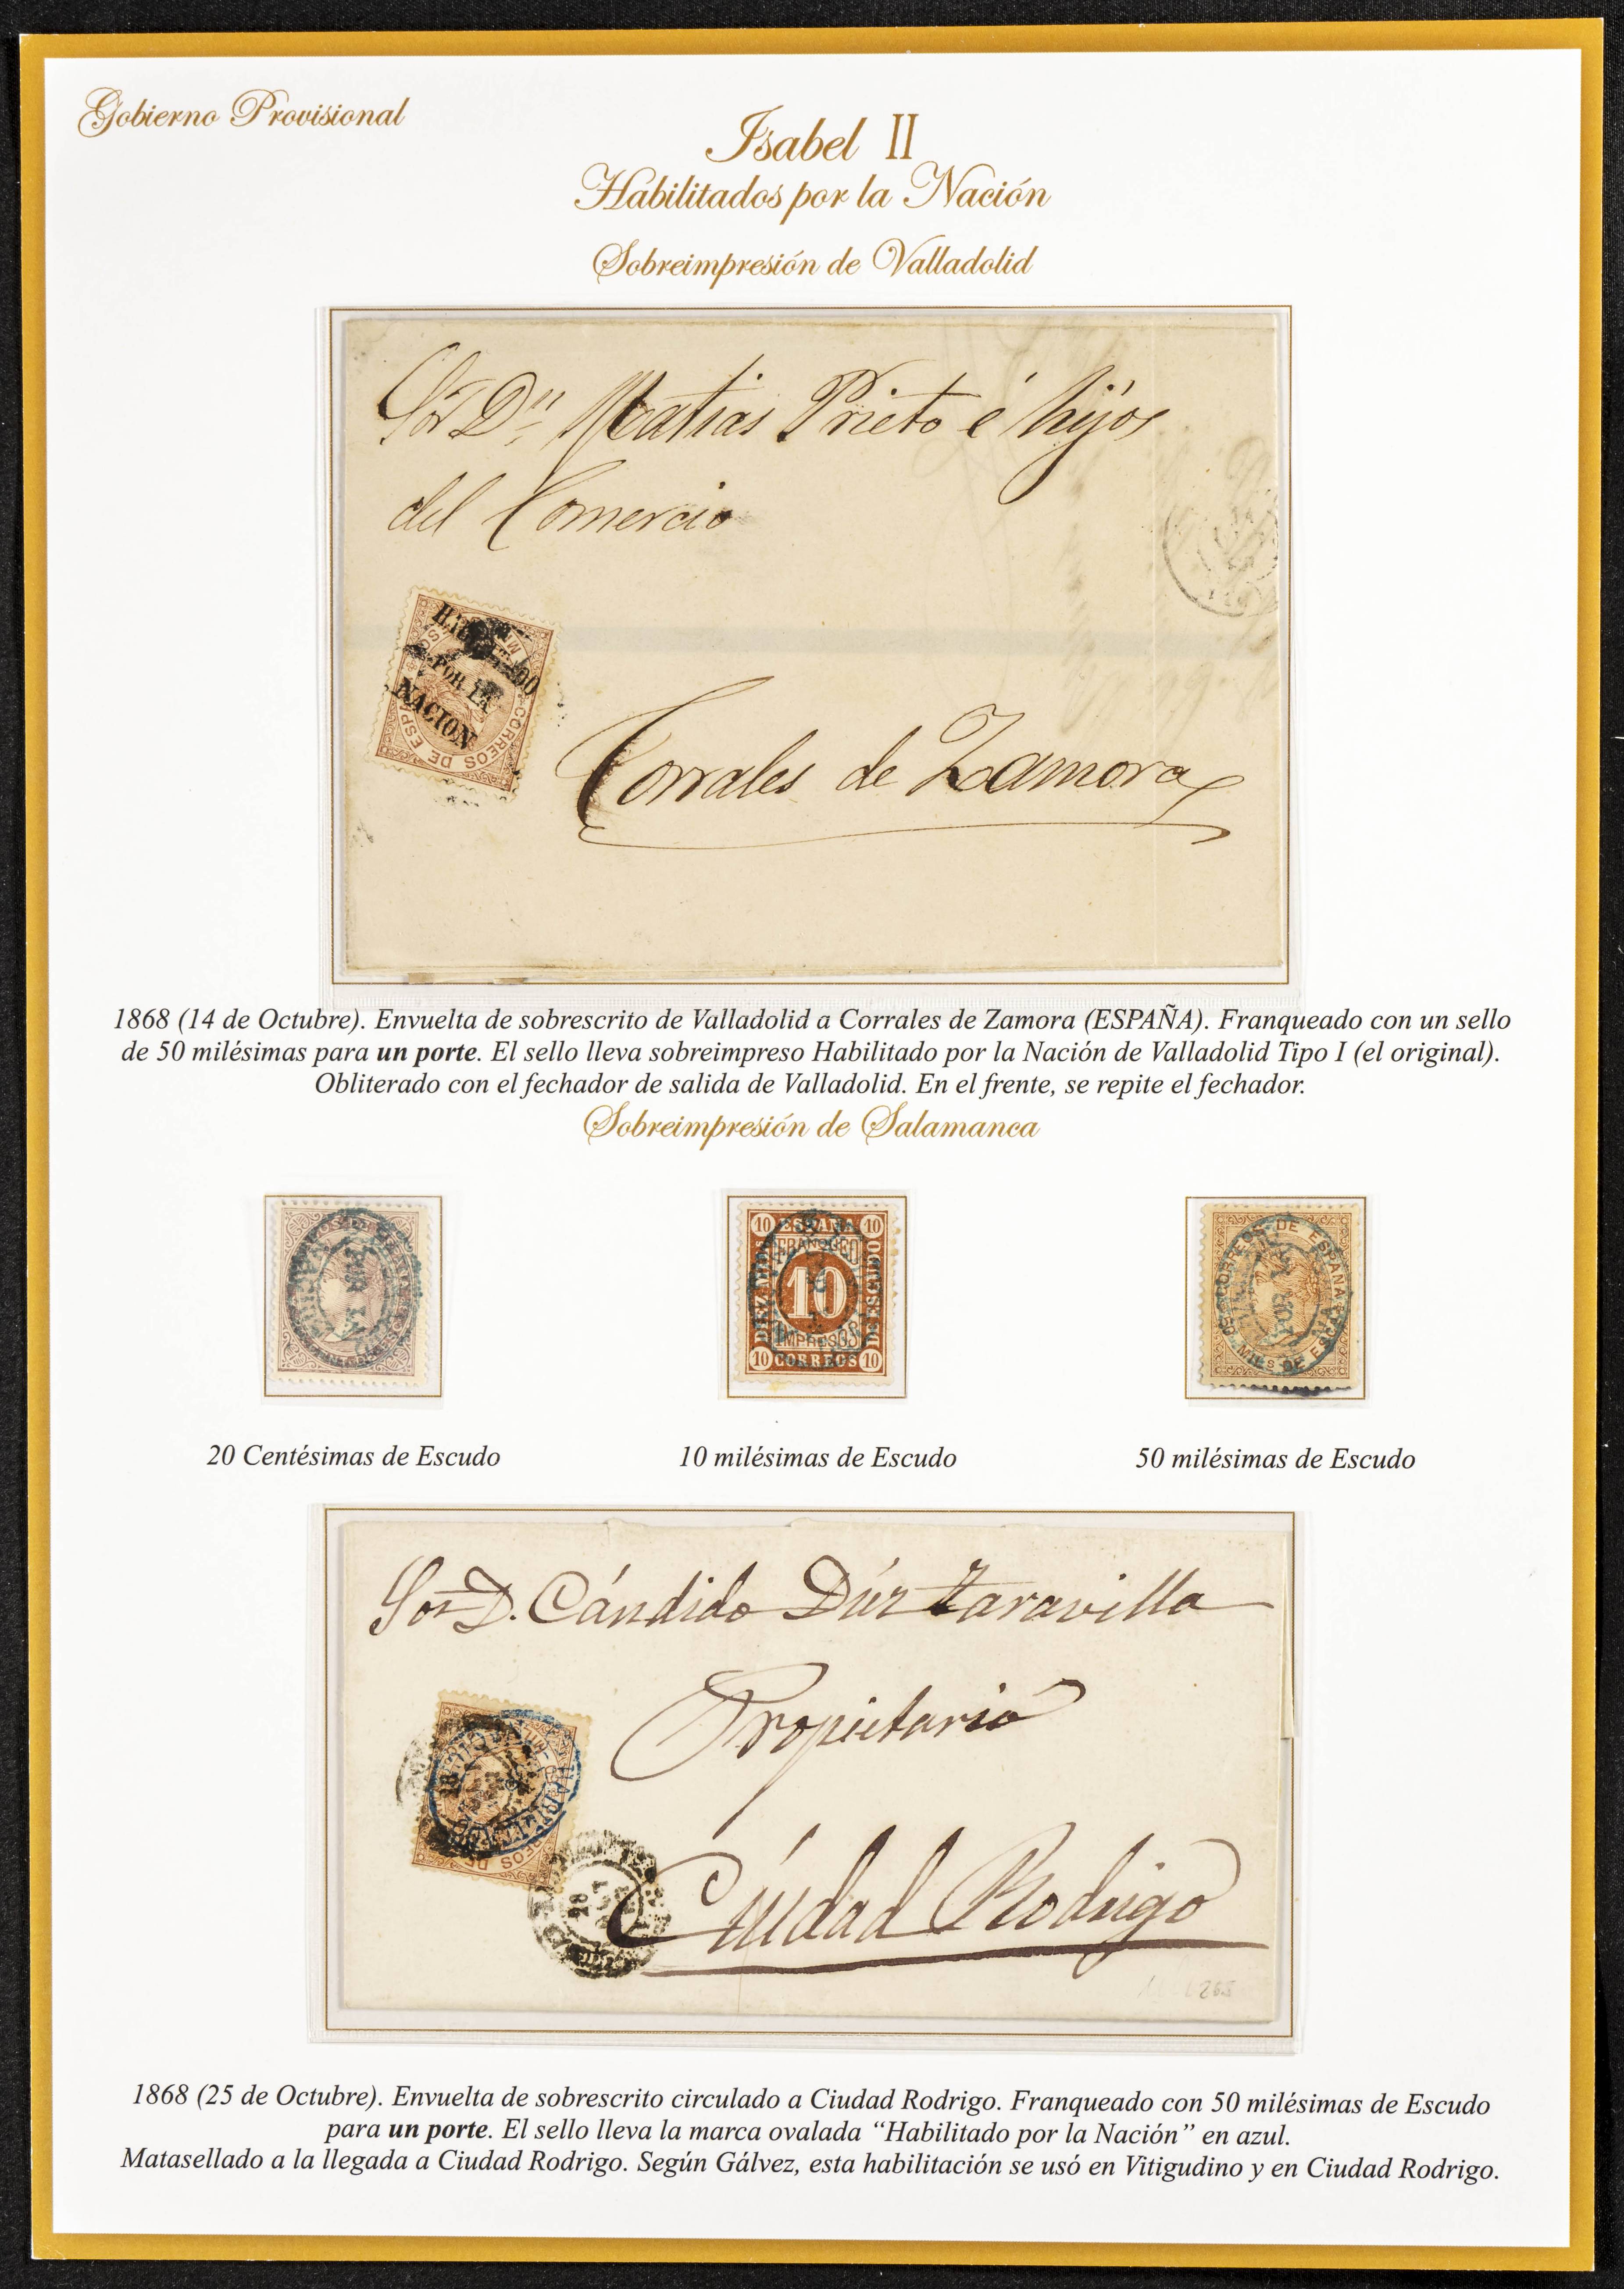 Gobierno Provisional
Isabel II
Habilitados por la Nación
Sobreimpresión de Valladolid
Sor Dn Matias Prieto é hijos
del Comercio
POR LA
NACION
CORREOS DE ESP
Corrales de Zamora
1868 (14 de Octubre). Envuelta de sobrescrito de Valladolid a Corrales de Zamora (ESPAÑA). Franqueado con un sello
de 50 milésimas para un porte. El sello lleva sobreimpreso Habilitado por la Nación de Valladolid Tipo I (el original).
Obliterado con el fechador de salida de Valladolid. En el frente, se repite el fechador.
Sobreimpresión de Salamanca
10 ESPAÑA 10
FRANQUEO
DIEZ MILS
10
DE ESCUDO
IMPRESOS
10 CORREOS 10
CORREOS DE ESPAÑA
50 MILS DE ESCUDO
20 Centésimas de Escudo
10 milésimas de Escudo
50 milésimas de Escudo
Sor D. Cándido Dúrz Zaravilla
Propietario
Ciudad Rodrigo
28
265
1868 (25 de Octubre). Envuelta de sobrescrito circulado a Ciudad Rodrigo. Franqueado con 50 milésimas de Escudo
para un porte. El sello lleva la marca ovalada “Habilitado por la Nación” en azul.
Matasellado a la llegada a Ciudad Rodrigo. Según Gálvez, esta habilitación se usó en Vitigudino y en Ciudad Rodrigo.